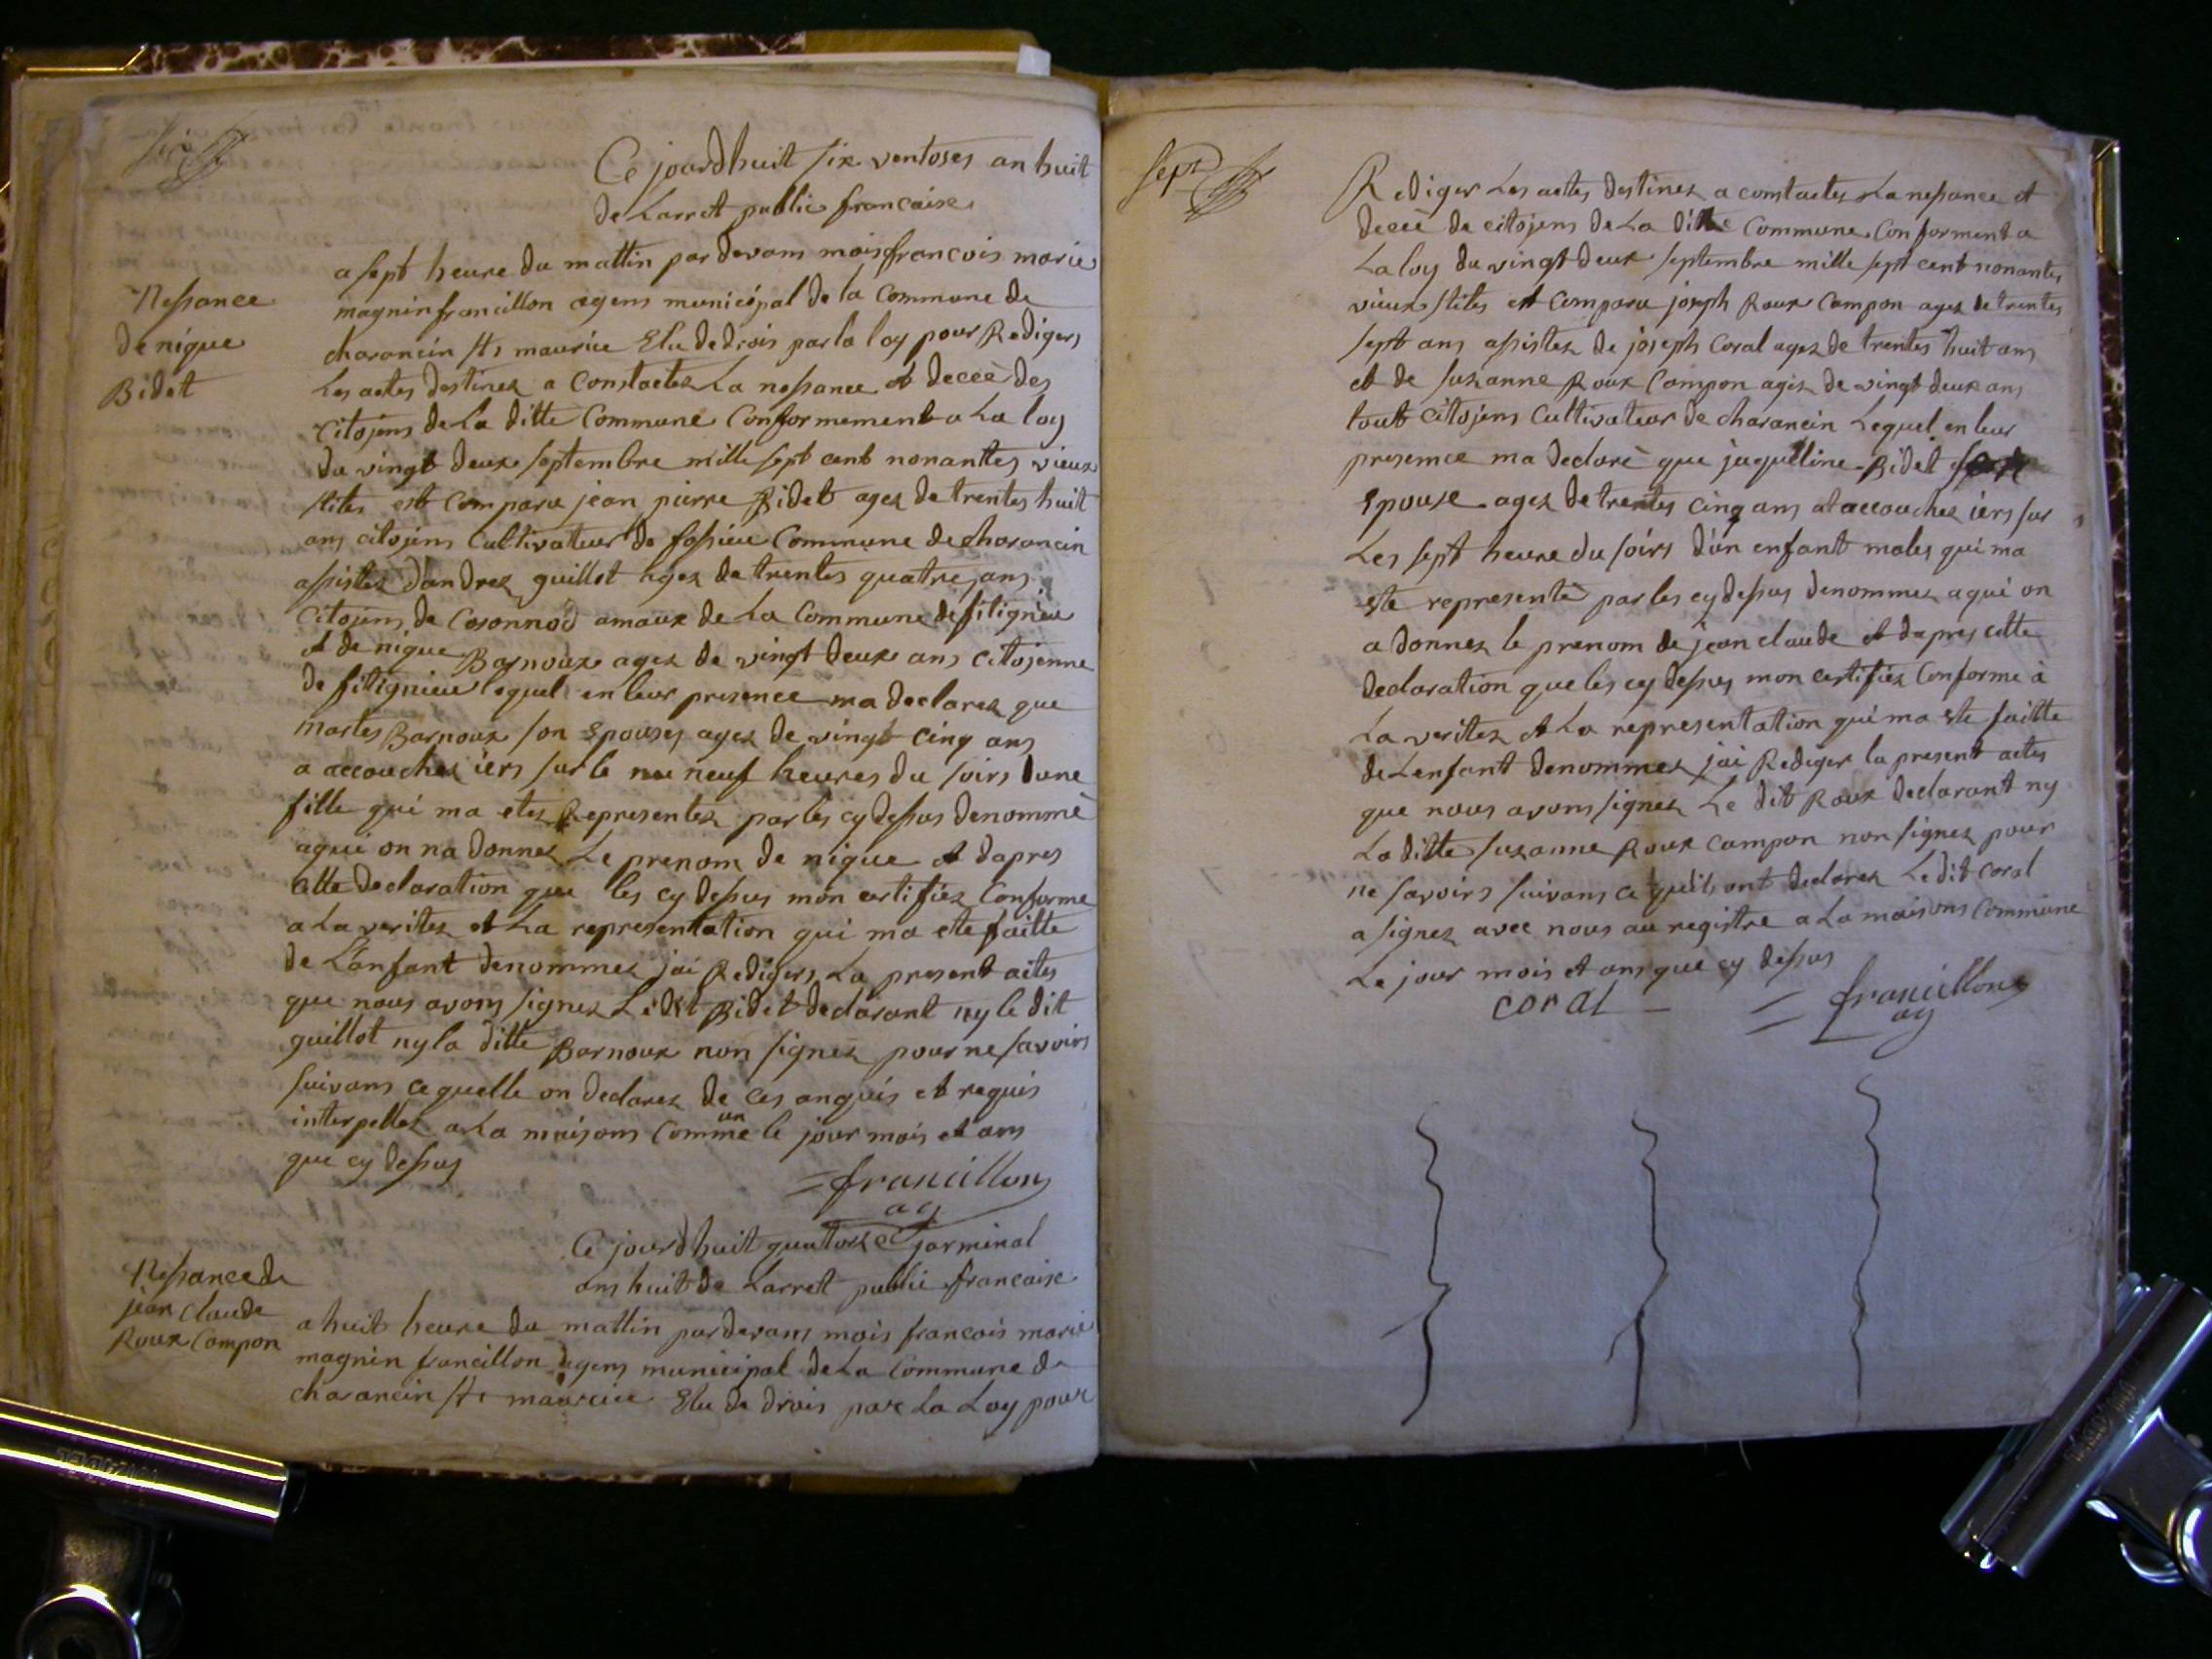 six
Ce jourdhuit six ventoses an huit
de Larret public francaise
Nessance
de nique
Bidet
a sept heure du mattin pardevans mois francois marie
magnin francillon agens municipal de la Commune de
charancin sts maurice Elu dedrois par la loy pour Rediger
Les actes destinez a Constactez La nessance et deceè des
citojens de La ditte Commune Conformement a La loy
du vingt deux septembre mille sept cent nonanttes vieux
stiles est Comparu jean pierre Bidet agez de trentes huit
ans citojens Cultivateur de fassieu Commune de charancin
assistez dandrez guillot agez de trentes quatre ans
Citojens de Coronnod amaux de La Commune de sitignieu
et de nique Barnoux agez de vingt deux ans citojenne
de sitignieu lequel en leur presence ma declarez que
martes Barnoux son Epouses agez de vingt cinq ans
a accouchez iers sur le neu neuf heures du soirs dune
fille qui ma etes Representez par les cy dessus denommé
a qui on na donnez Le prenom de nique et dapres
cette declaration que les cy dessus mon certifiez Conforme
a La veritez et La representation qui ma ete faitte
de Lanfant denommez jai Redigers La present actes
que nous avons signez Le dit Bidet declarant ny le dit
guillot ny la ditte Barnoux non signez pour ne savoirs
suivans ce quelle on declarez de ces anquis et requis
interpellez a La maisons Commune le jour mois et ans
que cy dessus
= francillon
ag
Ce jourdhuit quatorze jarminal
ans huit de Larret public francaise
Nessance de
jean Claude
Roux Campon
a huit heure du mattin pardevans mois francois marie
magnin francillon agens municipal de La Commune de
charancin sts maurice Elu de drois par La Loy pour
sept
Rediger Les actes destinez a constactes La nessance et
deceè de citojens de La ditte Commune Conforment a
La loy du vingt deux septembre mille sept cent nonantes
vieux stiles est Comparu joseph Roux Campon agez de trentes
sept ans assistez de joseph Coral agez de trentes huit ans
et de suzanne Roux Campon agez de vingt deux ans
tout citojens Cultivateur de charancin Lequel en leur
presence ma declaré que jaqueline Bidet
Epouse agez de trentes cinq ans at accouchez iers sur
Les sept heure du soirs d'un enfant males qui ma
ete representè par les cy dessus denommez a qui on
a donnez le prenom de jean claude et dapres cette
declaration que les cy dessus mon certifiez Conforme à
La veritez et La representation qui ma ete faitte
de Lenfant denommez jai Rediger la present actes
que nous avons signez Le dit Roux declarant ny
La ditte suzanne Roux campon non signez pour
ne savoirs suivans ce quils ont declarez Le dit coral
a signez avec nous au registre a La maisons Commune
Le jour mois et ans que cy dessus
coral = francillon
ag